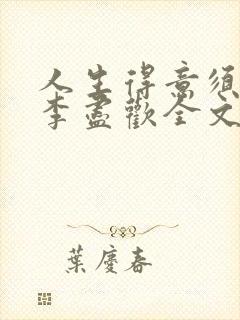 人生得意须
李盡歡全文
葉慶春